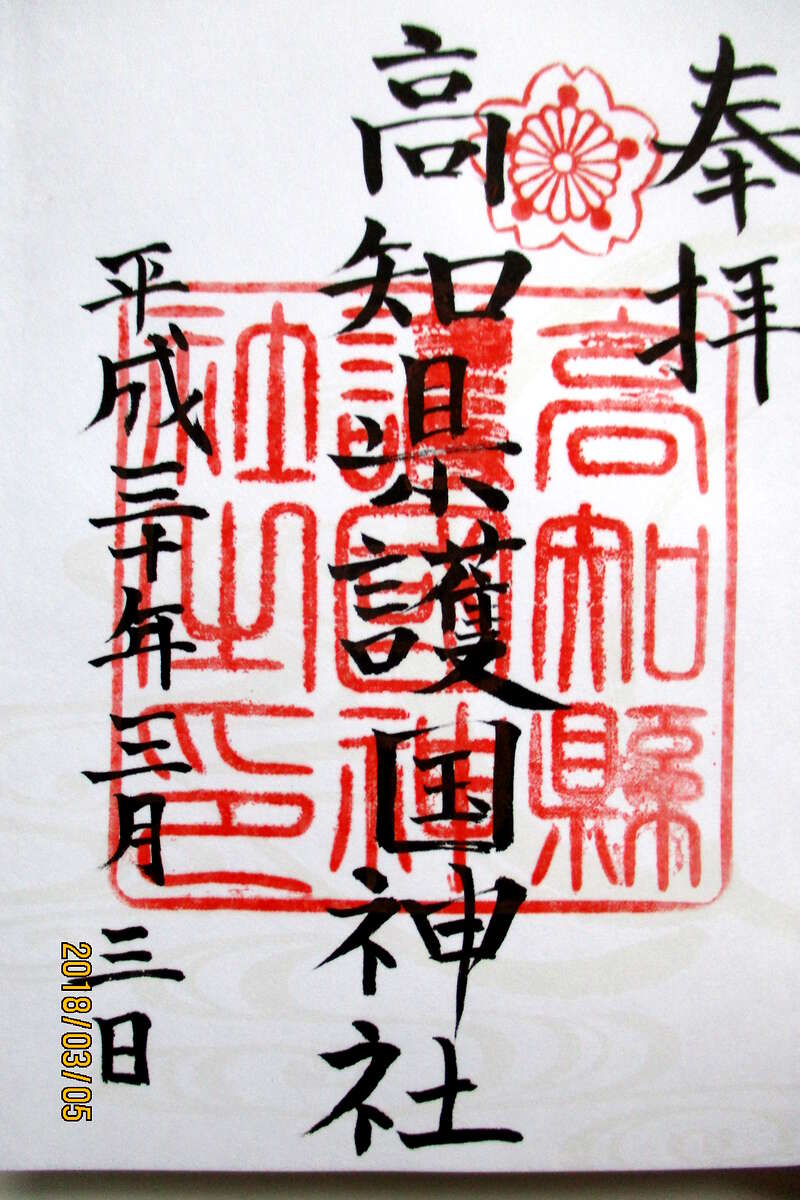 奉拝
高知県護国神社
高知縣
護國神
社之印
平成三十年三月三日
2018/03/05